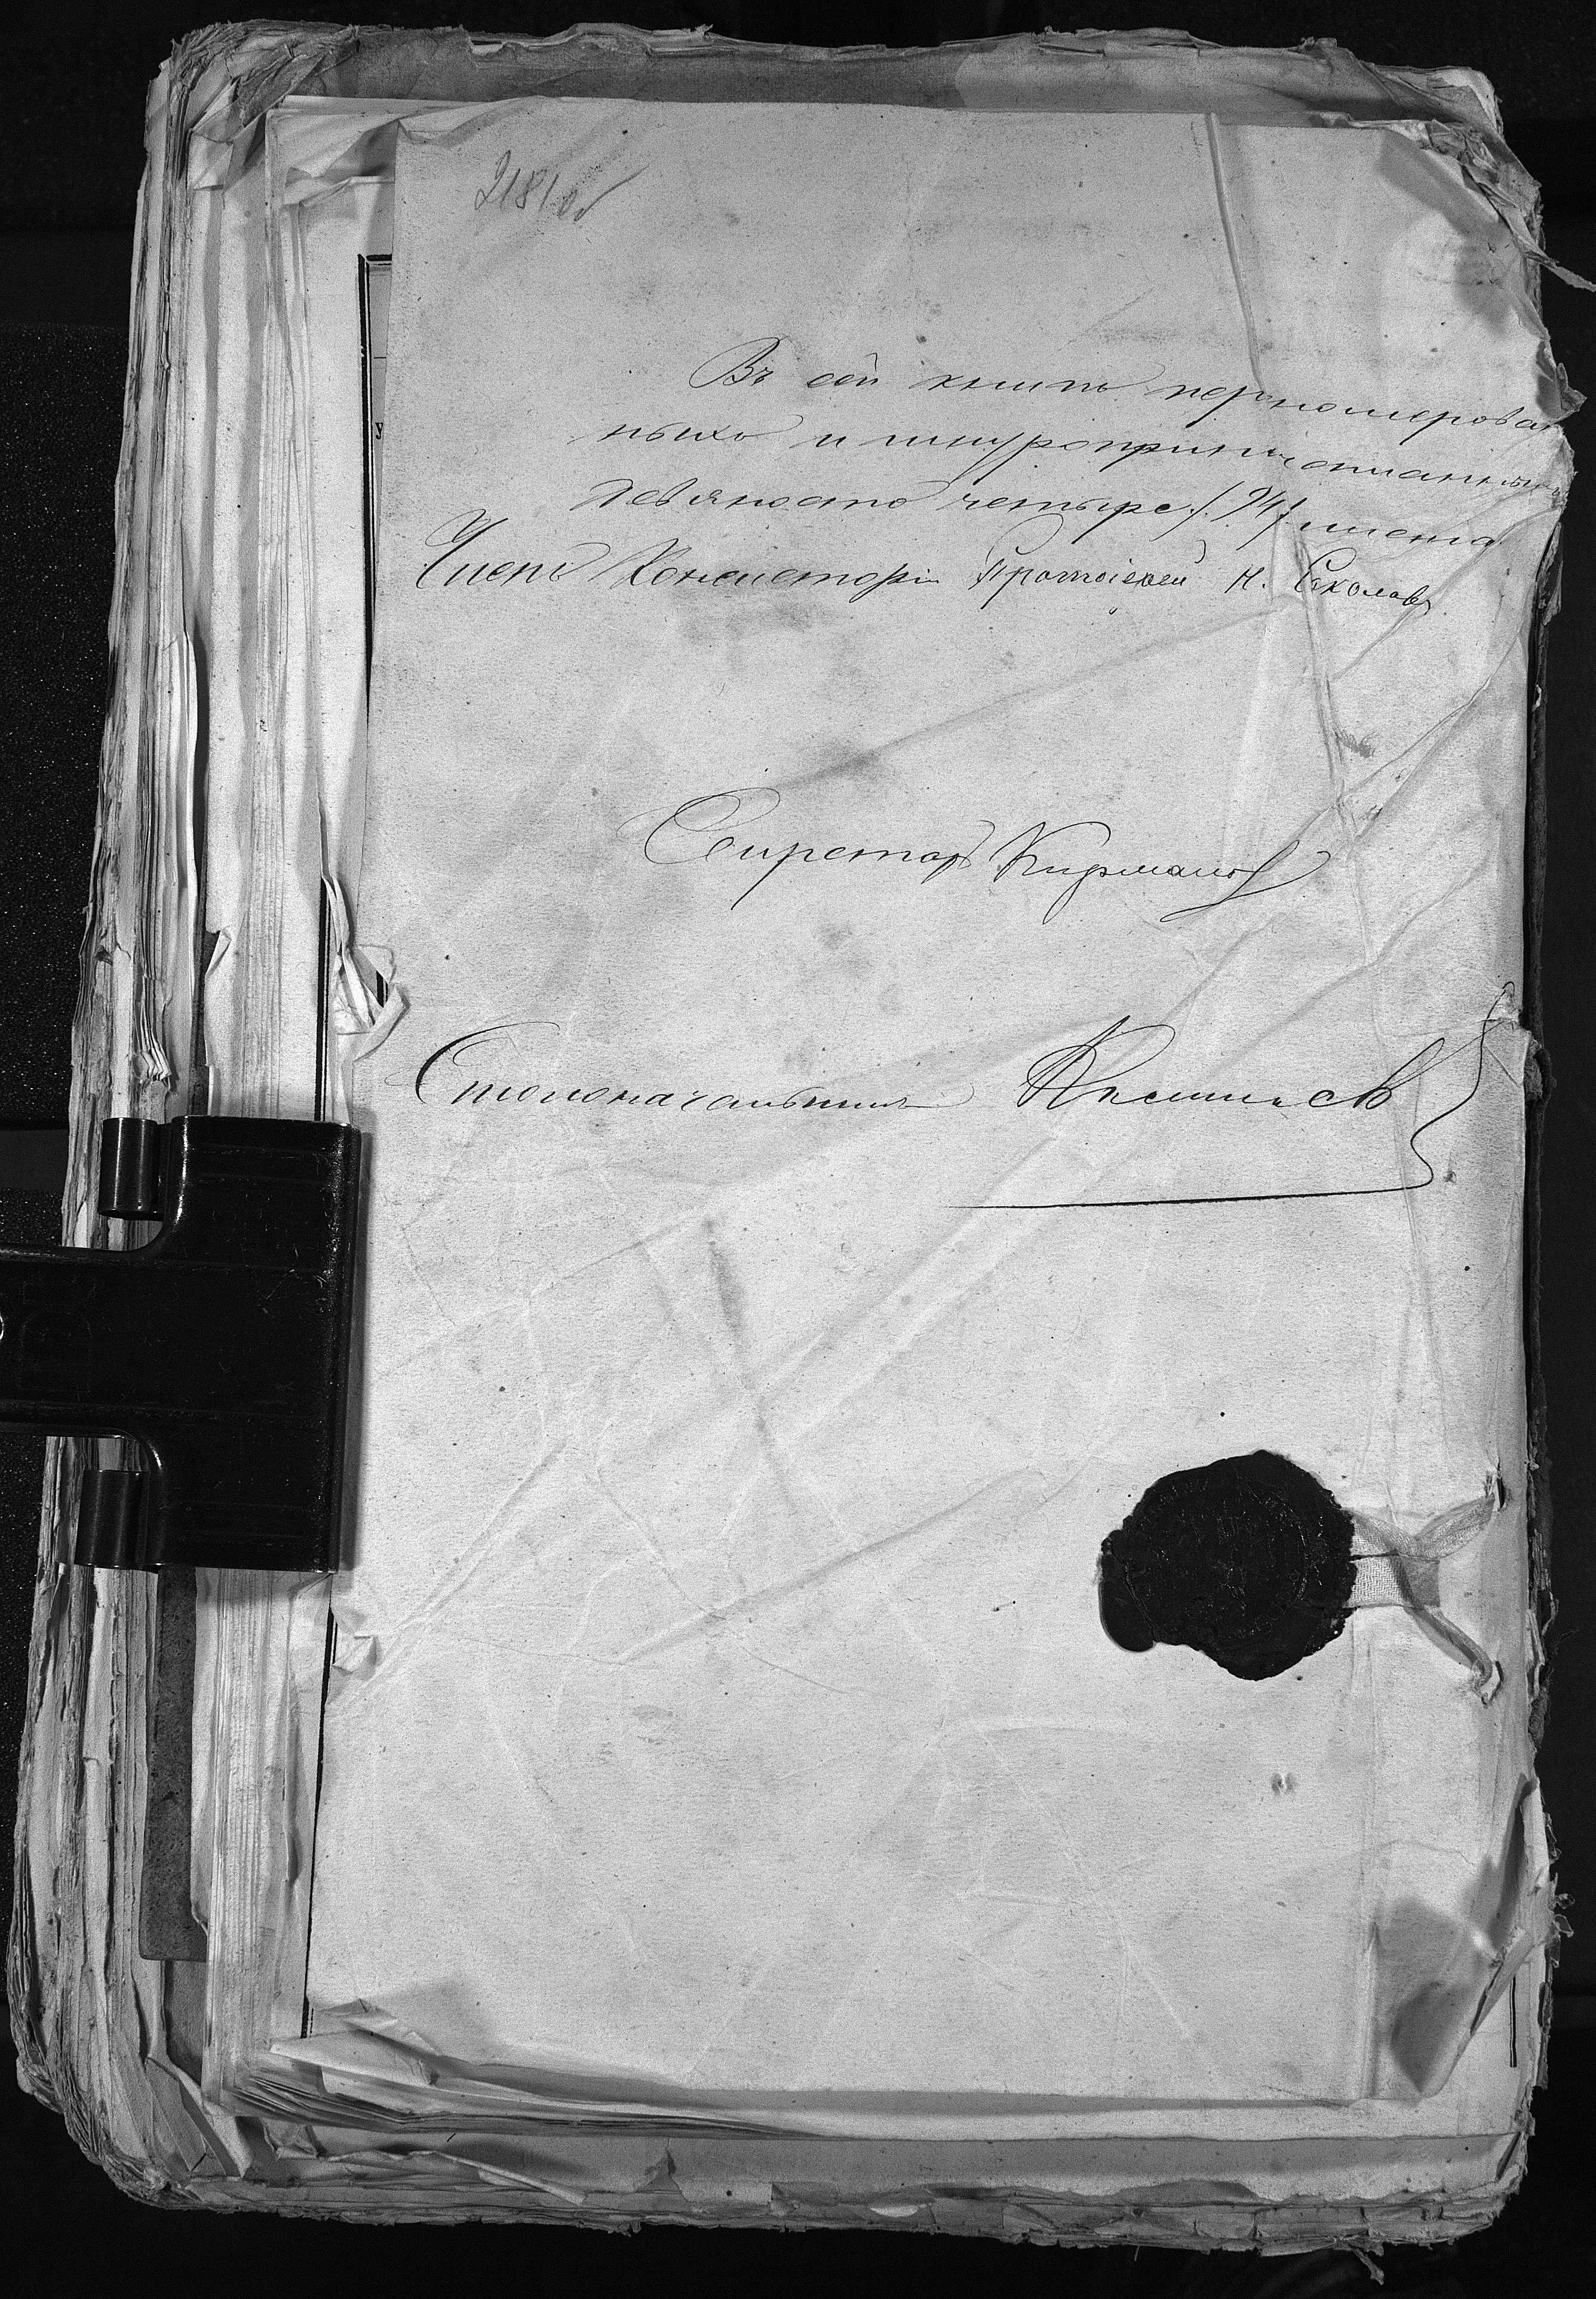 218 об
Въ сей книгѣ перномерован
ныхъ и шнуроприпечатанныхъ
девяносто четыре /94/ листа.
Членъ Консисторіи Протоіерей Н. Соколовъ
Секретарь
Столоначальникъ
У